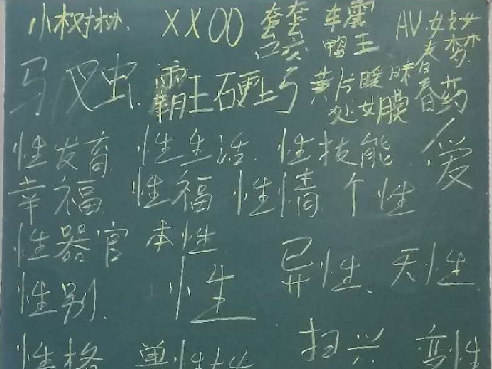 小树林 XXOO 套套 车震 AV女
口交 鸭王 春梦
驯 虫 霸王硬上弓 黄片 暧昧 春药
处女膜
性发育 性生活 性技能 爱
幸福 性福 性情 个性
性器官 本性
性别 性 异性 天性
性格 单性 扫兴 变性